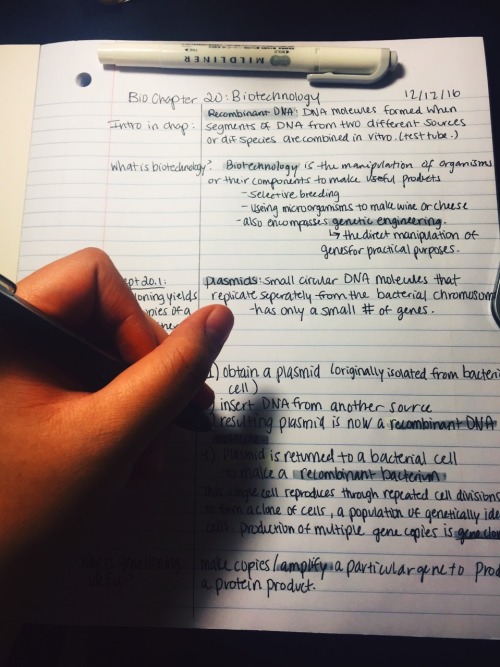 MILDLINER
Bio Chapter 20: Biotechnology 12/17/16
Recombinant DNA: DNA molecules formed when
Intro in chap: segments of DNA from two different sources
or dif species are combined in vitro. (test tube.)
What is biotechnology? Biotechnology is the manipulation of organisms
or their components to make useful products
- selective breeding
- useing microorganisms to make wine or cheese
- also encompasses genetic engineering.
↳ the direct manipulation of
genes for practical purposes.
20.1: plasmids: small circular DNA molecules that
cloning yields replicate seperately from the bacterial chromosom
copies of a - has only a small # of genes.
1) obtain a plasmid (originally isolated from bacteri
cell)
insert DNA from another source
resulting plasmid is now a recombinant DNA
4) Plasmid is returned to a bacterial cell
to make a recombinant bacterium
This single cell reproduces through repeated cell divisions
to form a clone of cells, a population of genetically ide
cells. production of multiple gene copies is gene clon
make copies/amplify a particular gene to prod
a protein product.